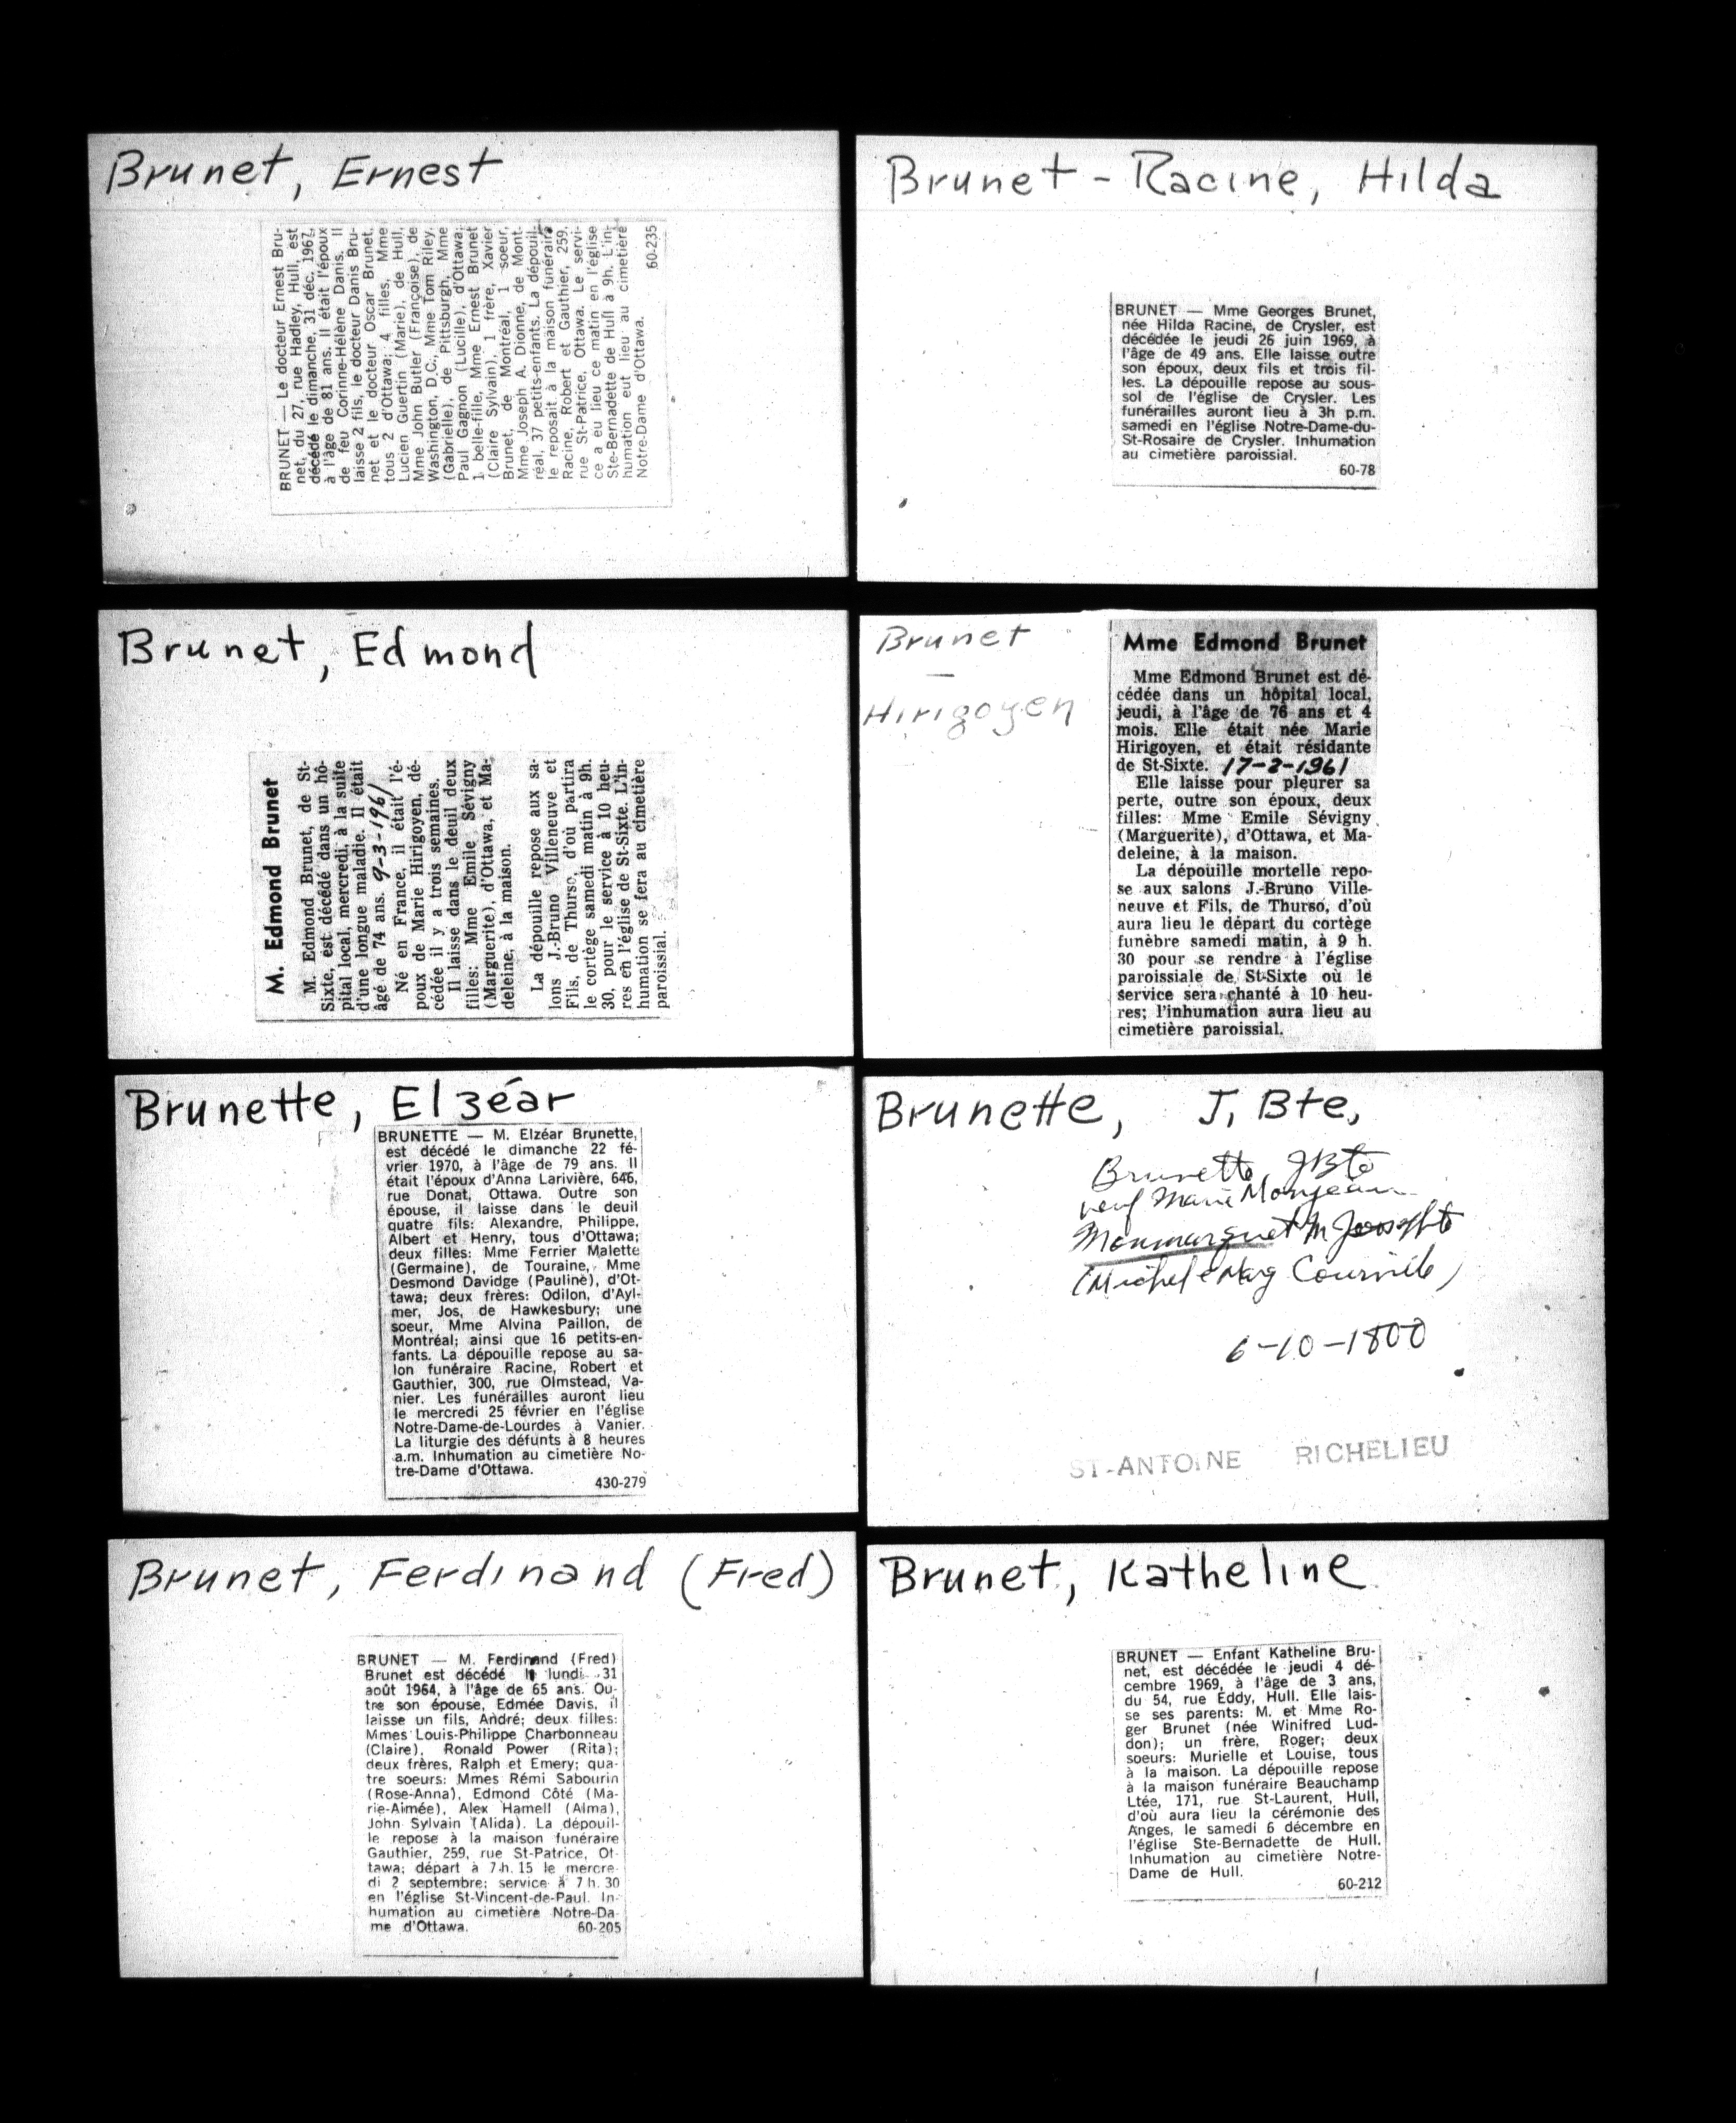 Brunet, Ernest
BRUNET — Le docteur Ernest Bru-
net, du 27, rue Hadley, Hull, est
décédé le dimanche, 31 déc. 1967,
à l'âge de 81 ans. Il était l'époux
de feu Corinne-Hélène Danis. Il
laisse 2 fils, le docteur Danis Bru-
net et le docteur Oscar Brunet,
tous 2 d'Ottawa; 4 filles, Mme
Lucien Guertin (Marie), de Hull,
Mme John Butler (Françoise), de
Washington, D.C., Mme Tom Riley,
(Gabrielle), de Pittsburgh, Mme
Paul Gagnon (Lucille), d'Ottawa;
1 belle-fille, Mme Ernest Brunet
(Claire Sylvain), 1 frère, Xavier
Brunet, de Montréal, 1 soeur,
Mme Joseph A. Dionne, de Mont-
réal, 37 petits-enfants. La dépouil-
le reposait à la maison funéraire
Racine, Robert et Gauthier, 259,
rue St-Patrice, Ottawa. Le servi-
ce a eu lieu ce matin en l'église
Ste-Bernadette de Hull à 9h. L'in-
humation eut lieu au cimetière
Notre-Dame d'Ottawa.
60-235
Brunet - Racine, Hilda
BRUNET — Mme Georges Brunet,
née Hilda Racine, de Crysler, est
décédée le jeudi 26 juin 1969, à
l'âge de 49 ans. Elle laisse outre
son époux, deux fils et trois fil-
les. La dépouille repose au sous-
sol de l'église de Crysler. Les
funérailles auront lieu à 3h p.m.
samedi en l'église Notre-Dame-du-
St-Rosaire de Crysler. Inhumation
au cimetière paroissial.
60-78
Brunet, Edmond
M. Edmond Brunet
M. Edmond Brunet, de St-
Sixte, est décédé dans un hô-
pital local, mercredi, à la suite
d'une longue maladie. Il était
âgé de 74 ans. 9-3-1961
Né en France, il était l'é-
poux de Marie Hirigoyen, dé-
cédée il y a trois semaines.
Il laisse dans le deuil deux
filles: Mme Emile Sévigny
(Marguerite), d'Ottawa, et Ma-
deleine, à la maison.
La dépouille repose aux sa-
lons J.-Bruno Villeneuve et
Fils, de Thurso, d'où partira
le cortège samedi matin à 9h.
30, pour le service à 10 heu-
res en l'église de St-Sixte. L'in-
humation se fera au cimetière
paroissial.
Brunet
—
Hirigoyen
Mme Edmond Brunet
Mme Edmond Brunet est dé-
cédée dans un hôpital local,
jeudi, à l'âge de 76 ans et 4
mois. Elle était née Marie
Hirigoyen, et était résidante
de St-Sixte. 17-2-1961
Elle laisse pour pleurer sa
perte, outre son époux, deux
filles: Mme Emile Sévigny
(Marguerite), d'Ottawa, et Ma-
deleine, à la maison.
La dépouille mortelle repo-
se aux salons J.-Bruno Ville-
neuve et Fils, de Thurso, d'où
aura lieu le départ du cortège
funèbre samedi matin, à 9 h.
30 pour se rendre à l'église
paroissiale de St-Sixte où le
service sera chanté à 10 heu-
res; l'inhumation aura lieu au
cimetière paroissial.
Brunette, Elzéar
BRUNETTE — M. Elzéar Brunette,
est décédé le dimanche 22 fé-
vrier 1970, à l'âge de 79 ans. Il
était l'époux d'Anna Larivière, 646,
rue Donat, Ottawa. Outre son
épouse, il laisse dans le deuil
quatre fils: Alexandre, Philippe,
Albert et Henry, tous d'Ottawa;
deux filles: Mme Ferrier Malette
(Germaine), de Touraine, Mme
Desmond Davidge (Pauline), d'Ot-
tawa; deux frères: Odilon, d'Ayl-
mer, Jos, de Hawkesbury; une
soeur, Mme Alvina Paillon, de
Montréal; ainsi que 16 petits-en-
fants. La dépouille repose au sa-
lon funéraire Racine, Robert et
Gauthier, 300, rue Olmstead, Va-
nier. Les funérailles auront lieu
le mercredi 25 février en l'église
Notre-Dame-de-Lourdes à Vanier.
La liturgie des défunts à 8 heures
a.m. Inhumation au cimetière No-
tre-Dame d'Ottawa.
430-279
Brunette, J, Bte,
Brunette, JBte
veuf Marie Monjeau
Monmarquet M Josephte
(Michel & Marg Courville)
6-10-1800
ST-ANTOINE RICHELIEU
Brunet, Ferdinand (Fred)
BRUNET — M. Ferdinand (Fred)
Brunet est décédé le lundi 31
août 1964, à l'âge de 65 ans. Ou-
tre son épouse, Edmée Davis, il
laisse un fils, André; deux filles:
Mmes Louis-Philippe Charbonneau
(Claire), Ronald Power (Rita);
deux frères, Ralph et Emery; qua-
tre soeurs: Mmes Rémi Sabourin
(Rose-Anna), Edmond Côté (Ma-
rie-Aimée), Alex Hamell (Alma),
John Sylvain (Alida). La dépouil-
le repose à la maison funéraire
Gauthier, 259, rue St-Patrice, Ot-
tawa; départ à 7.h. 15 le mercre-
di 2 septembre; service à 7 h. 30
en l'église St-Vincent-de-Paul. In-
humation au cimetière Notre-Da-
me d'Ottawa. 60-205
Brunet, Katheline
BRUNET — Enfant Katheline Bru-
net, est décédée le jeudi 4 dé-
cembre 1969, à l'âge de 3 ans,
du 54, rue Eddy, Hull. Elle lais-
se ses parents: M. et Mme Ro-
ger Brunet (née Winifred Lud-
don); un frère, Roger; deux
soeurs: Murielle et Louise, tous
à la maison. La dépouille repose
à la maison funéraire Beauchamp
Ltée, 171, rue St-Laurent, Hull,
d'où aura lieu la cérémonie des
Anges, le samedi 6 décembre en
l'église Ste-Bernadette de Hull.
Inhumation au cimetière Notre-
Dame de Hull.
60-212